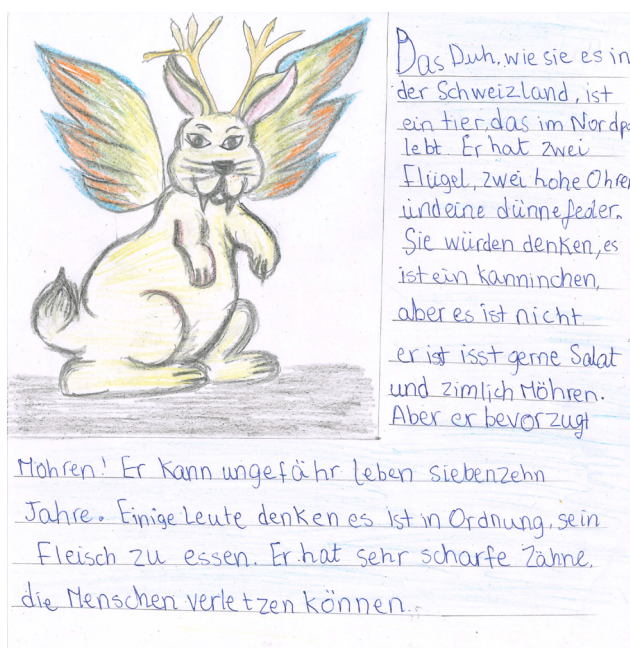 Das Duh, wie sie es in
der Schweizland, ist
ein tier, das im Nordpo
lebt. Er hat zwei
Flügel, zwei hohe Ohren
und eine dünne feder.
Sie würden denken, es
ist ein kanninchen,
aber es ist nicht
er ist isst gerne Salat
und zimlich Möhren.
Aber er bevorzugt
Möhren! Er kann ungefähr leben siebenzehn
Jahre. Einige Leute denken es ist in Ordnung, sein
Fleisch zu essen. Er hat sehr scharfe Zähne,
die Menschen verletzen können.